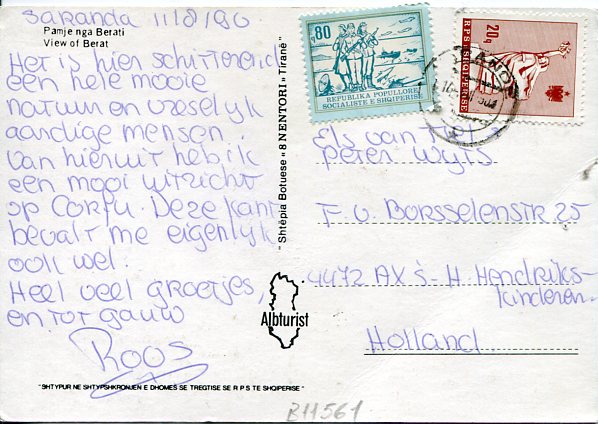 Saranda 11/8/90
Pamje nga Berati
View of Berat
Het is hier schitterend
een hele mooie
natuur en vreselijk
aardige mensen.
Van hieruit heb ik
een mooi uitzicht
op Corfu. Deze kant
bevalt me eigenlijk
ook wel.
Heel veel groetjes,
en tot gauw
Roos
"SHTYPUR NE SHTYPSHKRONJEN E DHOMES SE TREGTISE SE R P S TE SHQIPERISE"
"Shtëpia Botuese «8 NENTORI» Tiranë"
Albturist
80
REPUBLIKA POPULLORE
SOCIALISTE E SHQIPERISE
20q
RPS E SHQIPERISE
Els van
Peter Wyis
F. v. Borsselenstr 25
4472 AX s-H. Hendriks-
kinderen
Holland
B11561